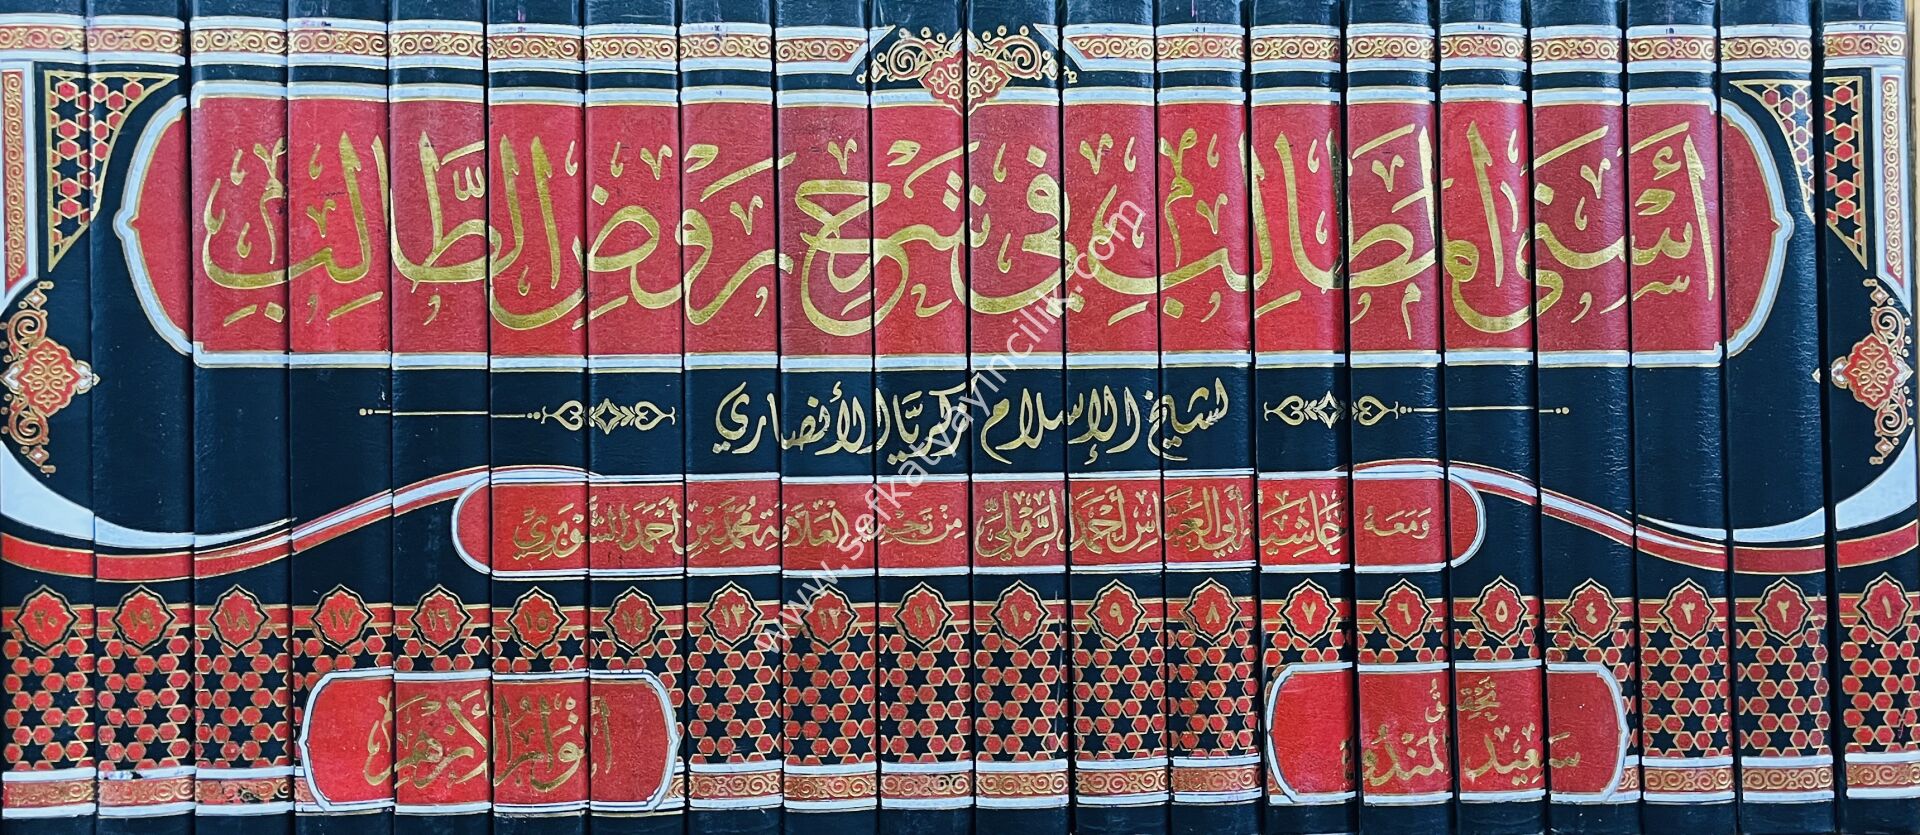 أَسْنَى المَطَالِبِ فِي شَرْحِ رَوْضِ الطَّالِبِ
لشيخ الإسلام زكريَّا الأنصاري
وَمَعَهُ حَاشِيَةُ أَبِي العَبَّاسِ أَحْمَدَ الرَّمْلِيِّ مِنْ تَجْرِيدِ العَلَّامَةِ مُحَمَّدِ بْنِ أَحْمَدَ الشَّوْبَرِيِّ
١ ٢ ٣ ٤ ٥ ٦ ٧ ٨ ٩ ١٠ ١١ ١٢ ١٣ ١٤ ١٥ ١٦ ١٧ ١٨ ١٩ ٢٠
تحقيق
سَعِيد المَنْدُوه
أَنْوَار الأَزْهَر
www.sefkatyayincilik.com